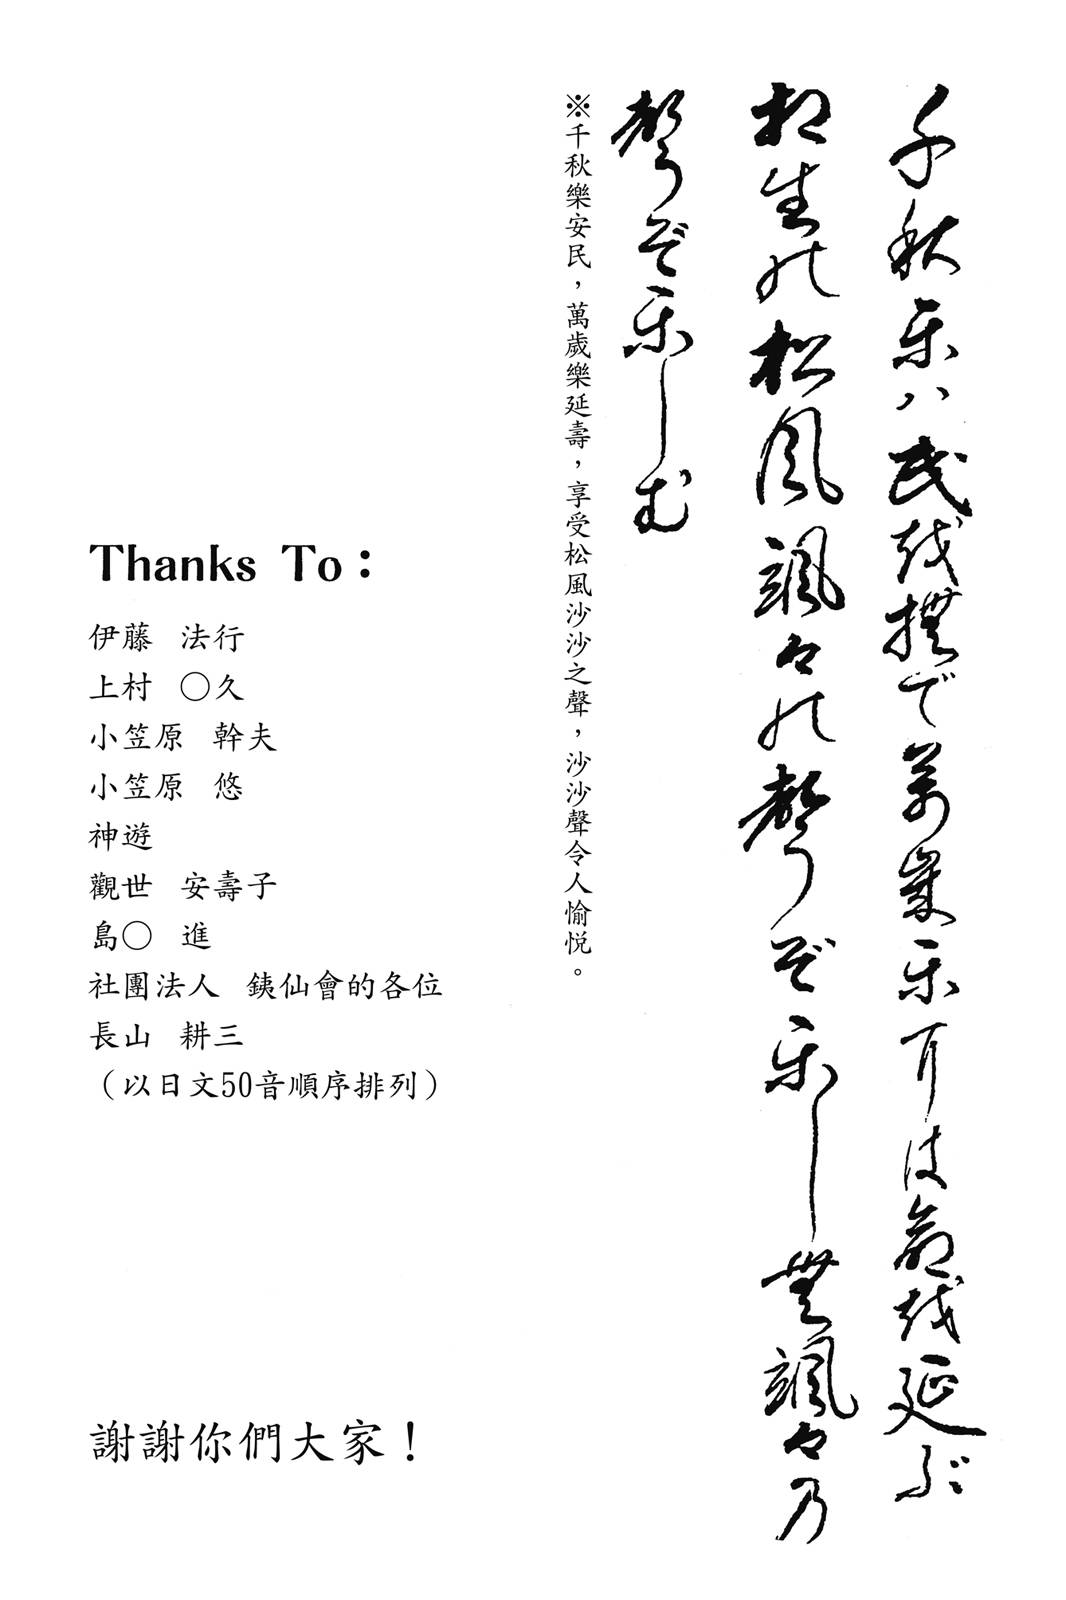 千秋楽ハ民越撫で萬歳楽耳は命越延ぶ
相生能松風颯々能聲ぞ楽し無颯々乃
聲ぞ楽しむ
※千秋樂安民，萬歲樂延壽，享受松風沙沙之聲，沙沙聲令人愉悅。
Thanks To：
伊藤 法行
上村 ○久
小笠原 幹夫
小笠原 悠
神遊
觀世 安壽子
島○ 進
社團法人 銕仙會的各位
長山 耕三
（以日文50音順序排列）
謝謝你們大家！